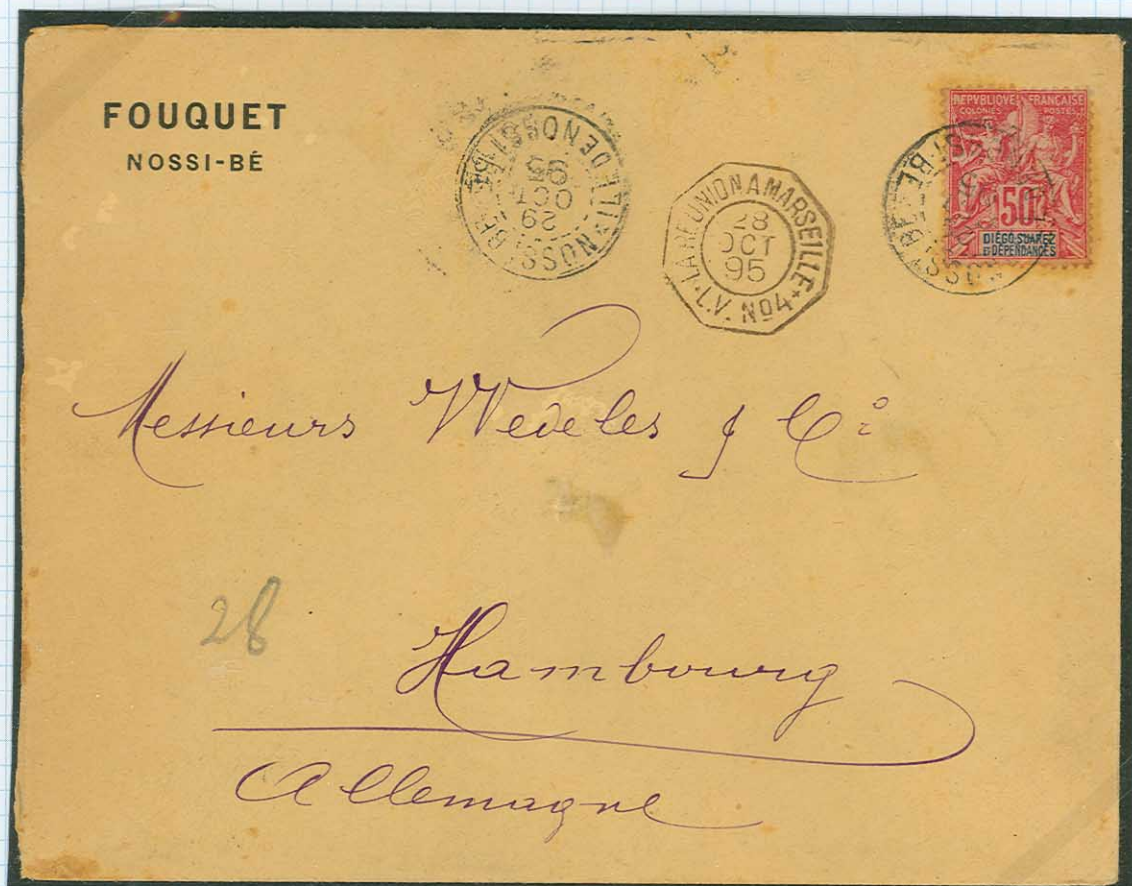 FOUQUET
NOSSI-BÉ
NOSSI-BÉ
29
OCT
95
LA REUNION A MARSEILLE
28
OCT
95
L.V. Nº4
REPVBLIQVE FRANÇAISE
COLONIES POSTES
50
DIÉGO-SUAREZ
ET DÉPENDANCES
Messieurs Wedeles & Cie
28
Hambourg
Allemagne